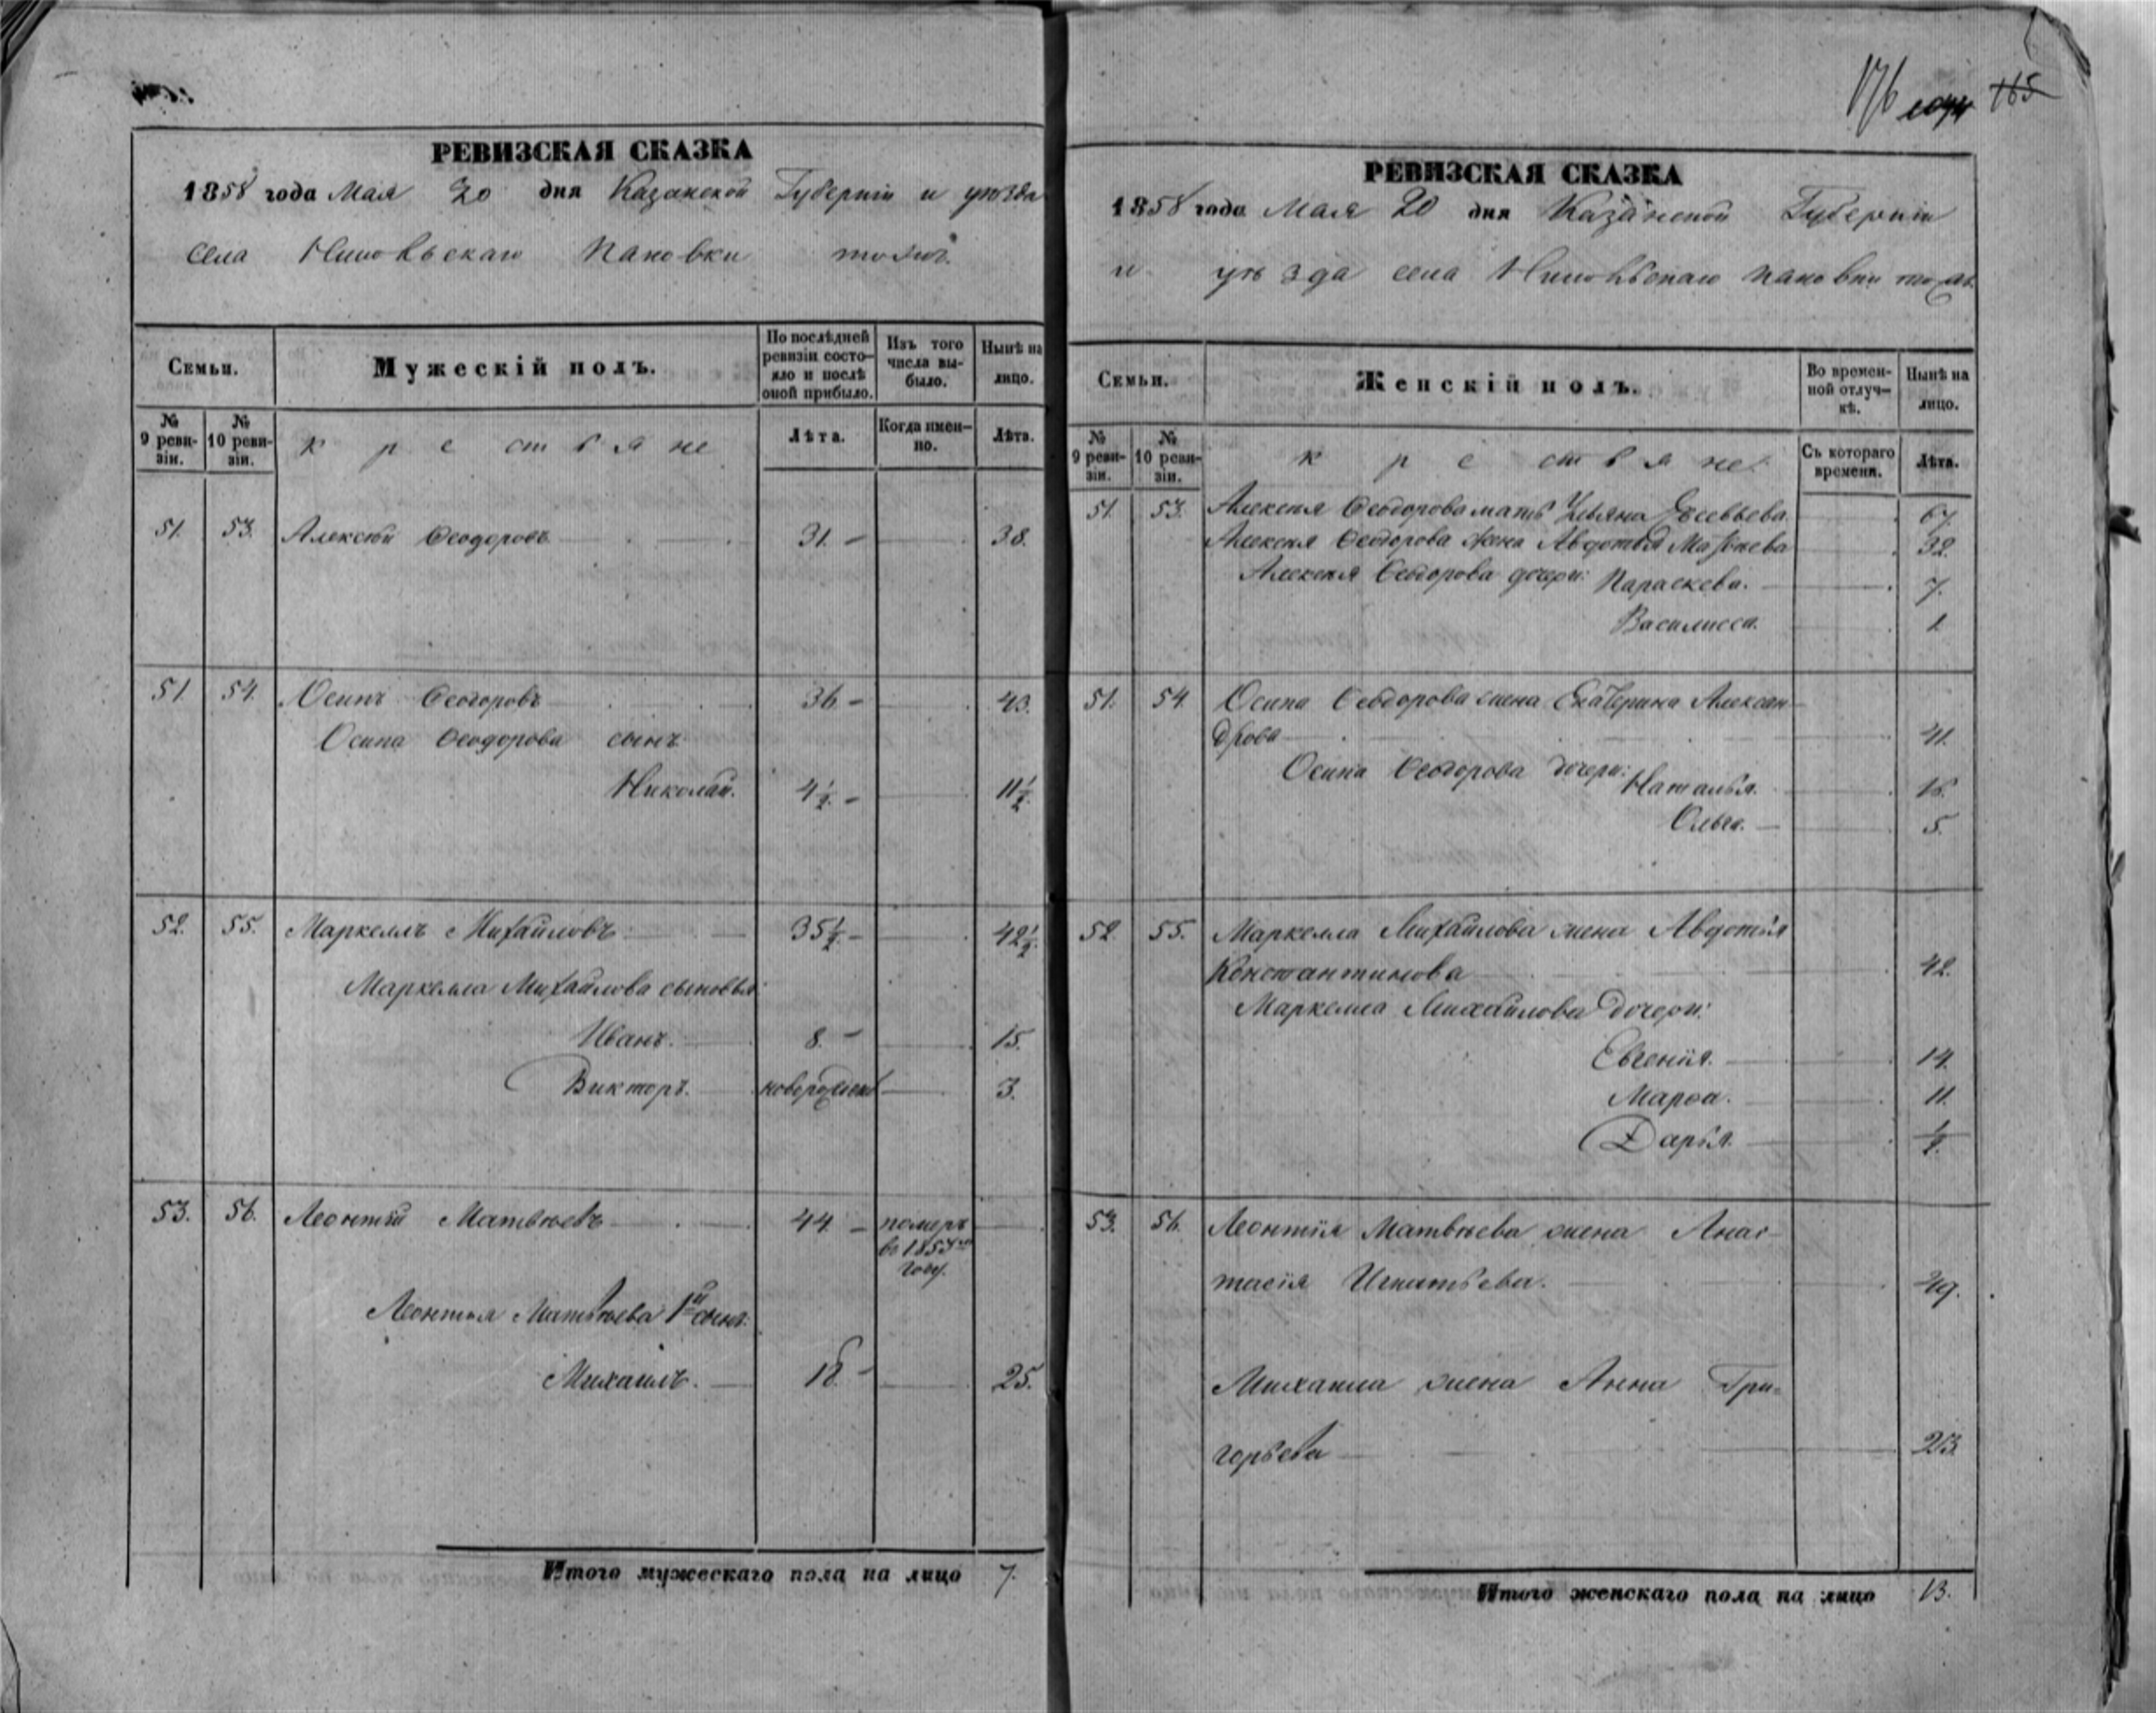 РЕВИЗСКАЯ СКАЗКА
1858 года Мая 20 дня Казанской Губерніи и уѣзда
села Никольскаго Пановки тожъ.
Семьи.
Мужескій полъ.
По послѣдней ревизіи состояло и послѣ оной прибыло.
Изъ того числа выбыло.
Нынѣ на лицо.
№ 9 ревизіи.
№ 10 ревизіи.
крестьяне
Лѣта.
Когда именно.
Лѣта.
51. 53. Алексѣй Ѳеодоровъ 31. 38.
51. 54. Осипъ Ѳеодоровъ 36 43.
Осипа Ѳеодорова сынъ
Николай. 4½ 11½
52. 55. Маркеллъ Михайловъ 35½ 42½
Маркелла Михайлова сыновья:
Иванъ. 8. 15.
Викторъ. новорожден 3.
53. 56. Леонтій Матвѣевъ 44 померъ
въ 185
году.
Леонтья Матвѣева 1й сынъ:
Михаилъ. 18 25.
Итого мужескаго пола на лицо 7.
176 165
РЕВИЗСКАЯ СКАЗКА
1858 года Мая 20 дня Казанской Губерніи
и уѣзда села Никольскаго Пановки тожъ.
Семьи.
Женскій полъ.
Во временной отлучкѣ.
Нынѣ на лицо.
№ 9 ревизіи.
№ 10 ревизіи.
крестьяне.
Съ котораго времени.
Лѣта.
51. 53. Алексѣя Ѳеодорова мать Ульяна Евсевьева 67.
Алексѣя Ѳеодорова жена Авдотья 32.
Алексѣя Ѳеодорова дочери: Параскева. 7.
Василисса. 1
51. 54. Осипа Ѳеодорова жена Екатерина Алексан-
дрова 41.
Осипа Ѳеодорова дочери:
Наталья. 16.
Ольга. 5.
52. 55. Маркелла Михайлова жена Авдотья
Константинова 42.
Маркелла Михайлова дочери:
Евгенія. 14.
Марѳа. 11.
Дарья. ½
53. 56. Леонтія Матвѣева жена Анас-
тасія Игнатьева. 49.
Михаила жена Анна Гри-
горьева 23.
Итого женскаго пола на лицо 13.